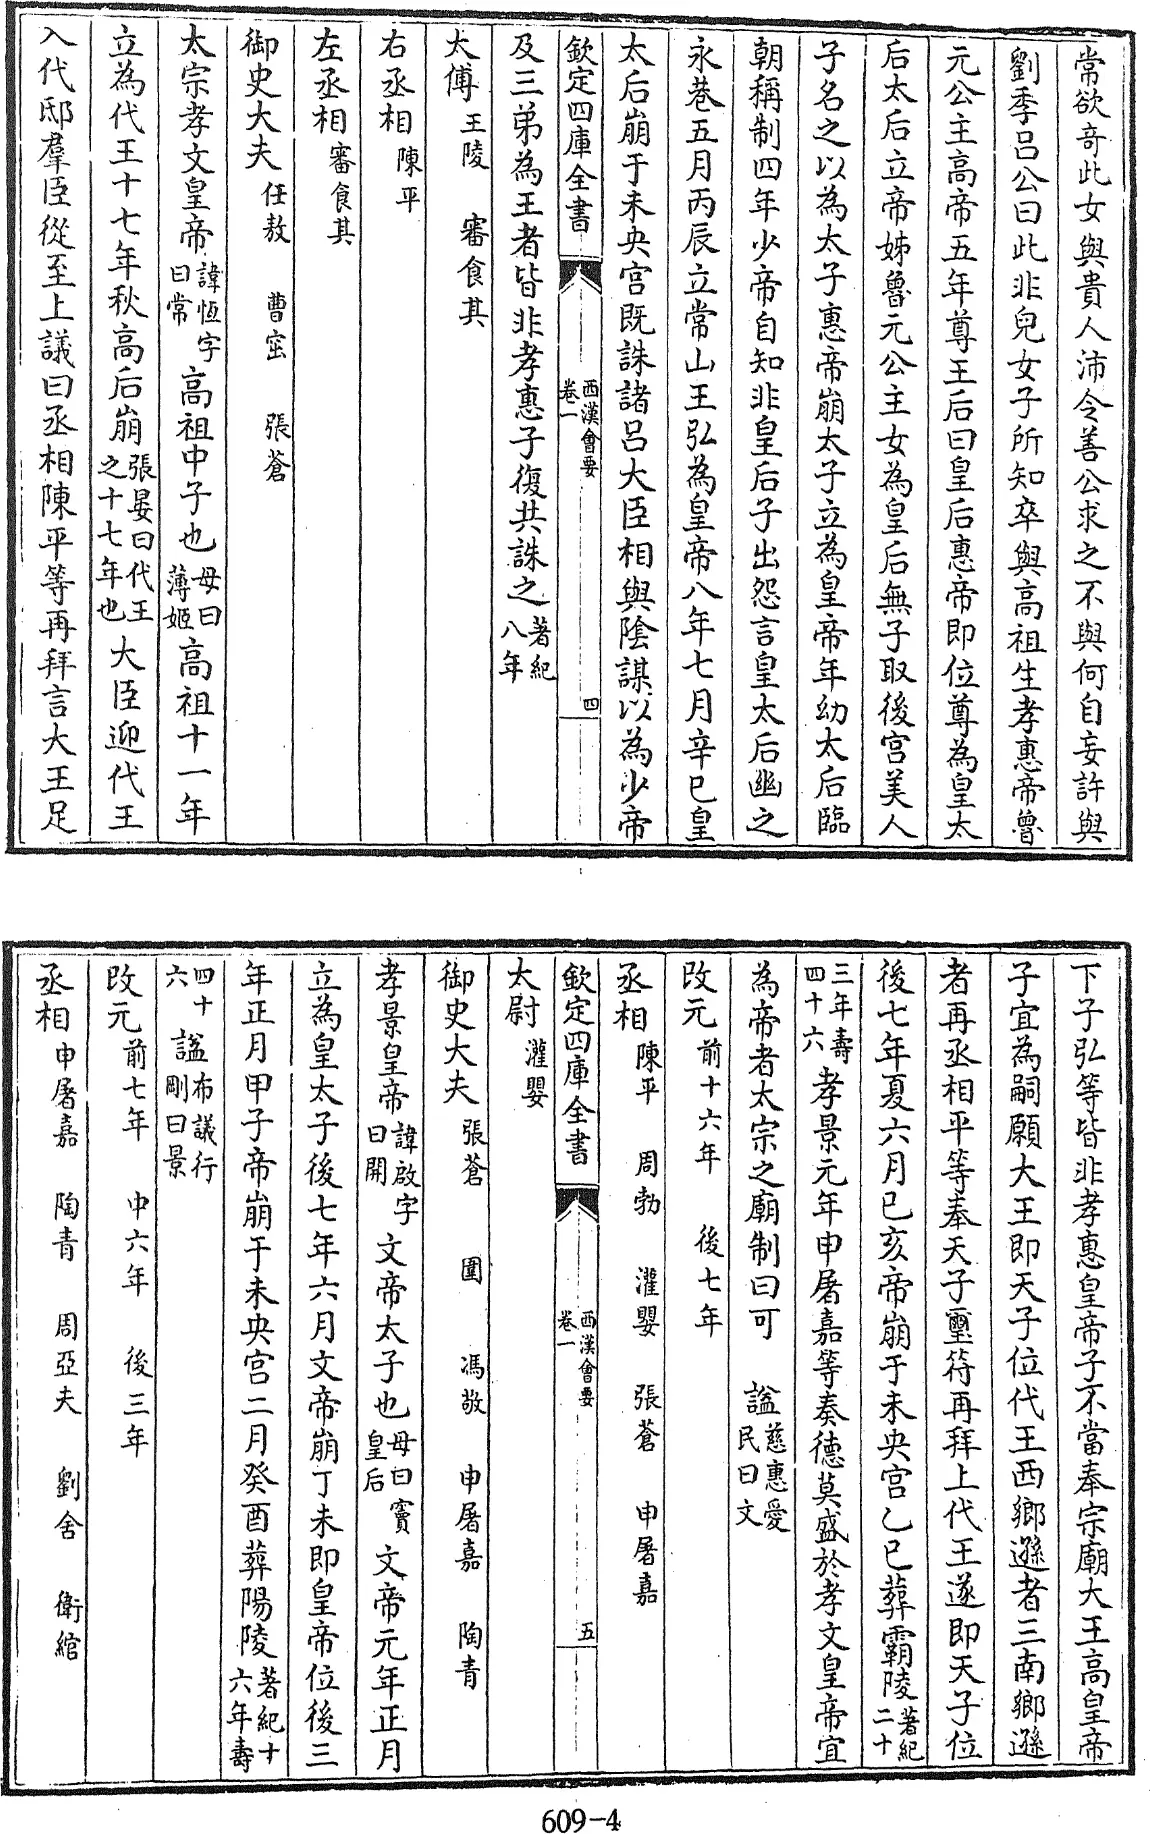 常欲奇此女與貴人沛令善公求之不與何自妄許與
劉季吕公曰此非兒女子所知卒與高祖生孝惠帝魯
元公主高帝五年尊王后曰皇后惠帝即位尊為皇太
后太后立帝姊魯元公主女為皇后無子取後宫美人
子名之以為太子惠帝崩太子立為皇帝年幼太后臨
朝稱制四年少帝自知非皇后子出怨言皇太后幽之
永巷五月丙辰立常山王弘為皇帝八年七月辛巳皇
太后崩于未央宫既誅諸吕大臣相與陰謀以為少帝
欽定四庫全書 西漢會要 卷一 四
及三弟為王者皆非孝惠子復共誅之著紀八年
太傅 王陵 審食其
右丞相 陳平
左丞相 審食其
御史大夫 任敖 曹窋 張蒼
太宗孝文皇帝諱恆字曰常高祖中子也母曰薄姬高祖十一年
立為代王十七年秋高后崩張晏曰代王之十七年也大臣迎代王
入代邸羣臣從至上議曰丞相陳平等再拜言大王足
下子弘等皆非孝惠皇帝子不當奉宗廟大王高皇帝
子宜為嗣願大王即天子位代王西鄉遜者三南鄉遜
者再丞相平等奉天子璽符再拜上代王遂即天子位
後七年夏六月已亥帝崩于未央宫乙巳葬霸陵著紀二十
三年壽四十六孝景元年申屠嘉等奏德莫盛於孝文皇帝宜
為帝者太宗之廟制曰可 諡慈惠愛民曰文
改元 前十六年 後七年
丞相 陳平 周勃 灌嬰 張蒼 申屠嘉
欽定四庫全書 西漢會要 卷一 五
太尉 灌嬰
御史大夫 張蒼 圍 馮敬 申屠嘉 陶青
孝景皇帝諱啟字曰開文帝太子也母曰竇皇后文帝元年正月
立為皇太子後七年六月文帝崩丁未即皇帝位後三
年正月甲子帝崩于未央宫二月癸酉葬陽陵著紀十六年壽
四十六諡布議行剛曰景
改元 前七年 中六年 後三年
丞相 申屠嘉 陶青 周亞夫 劉舍 衛綰
609-4